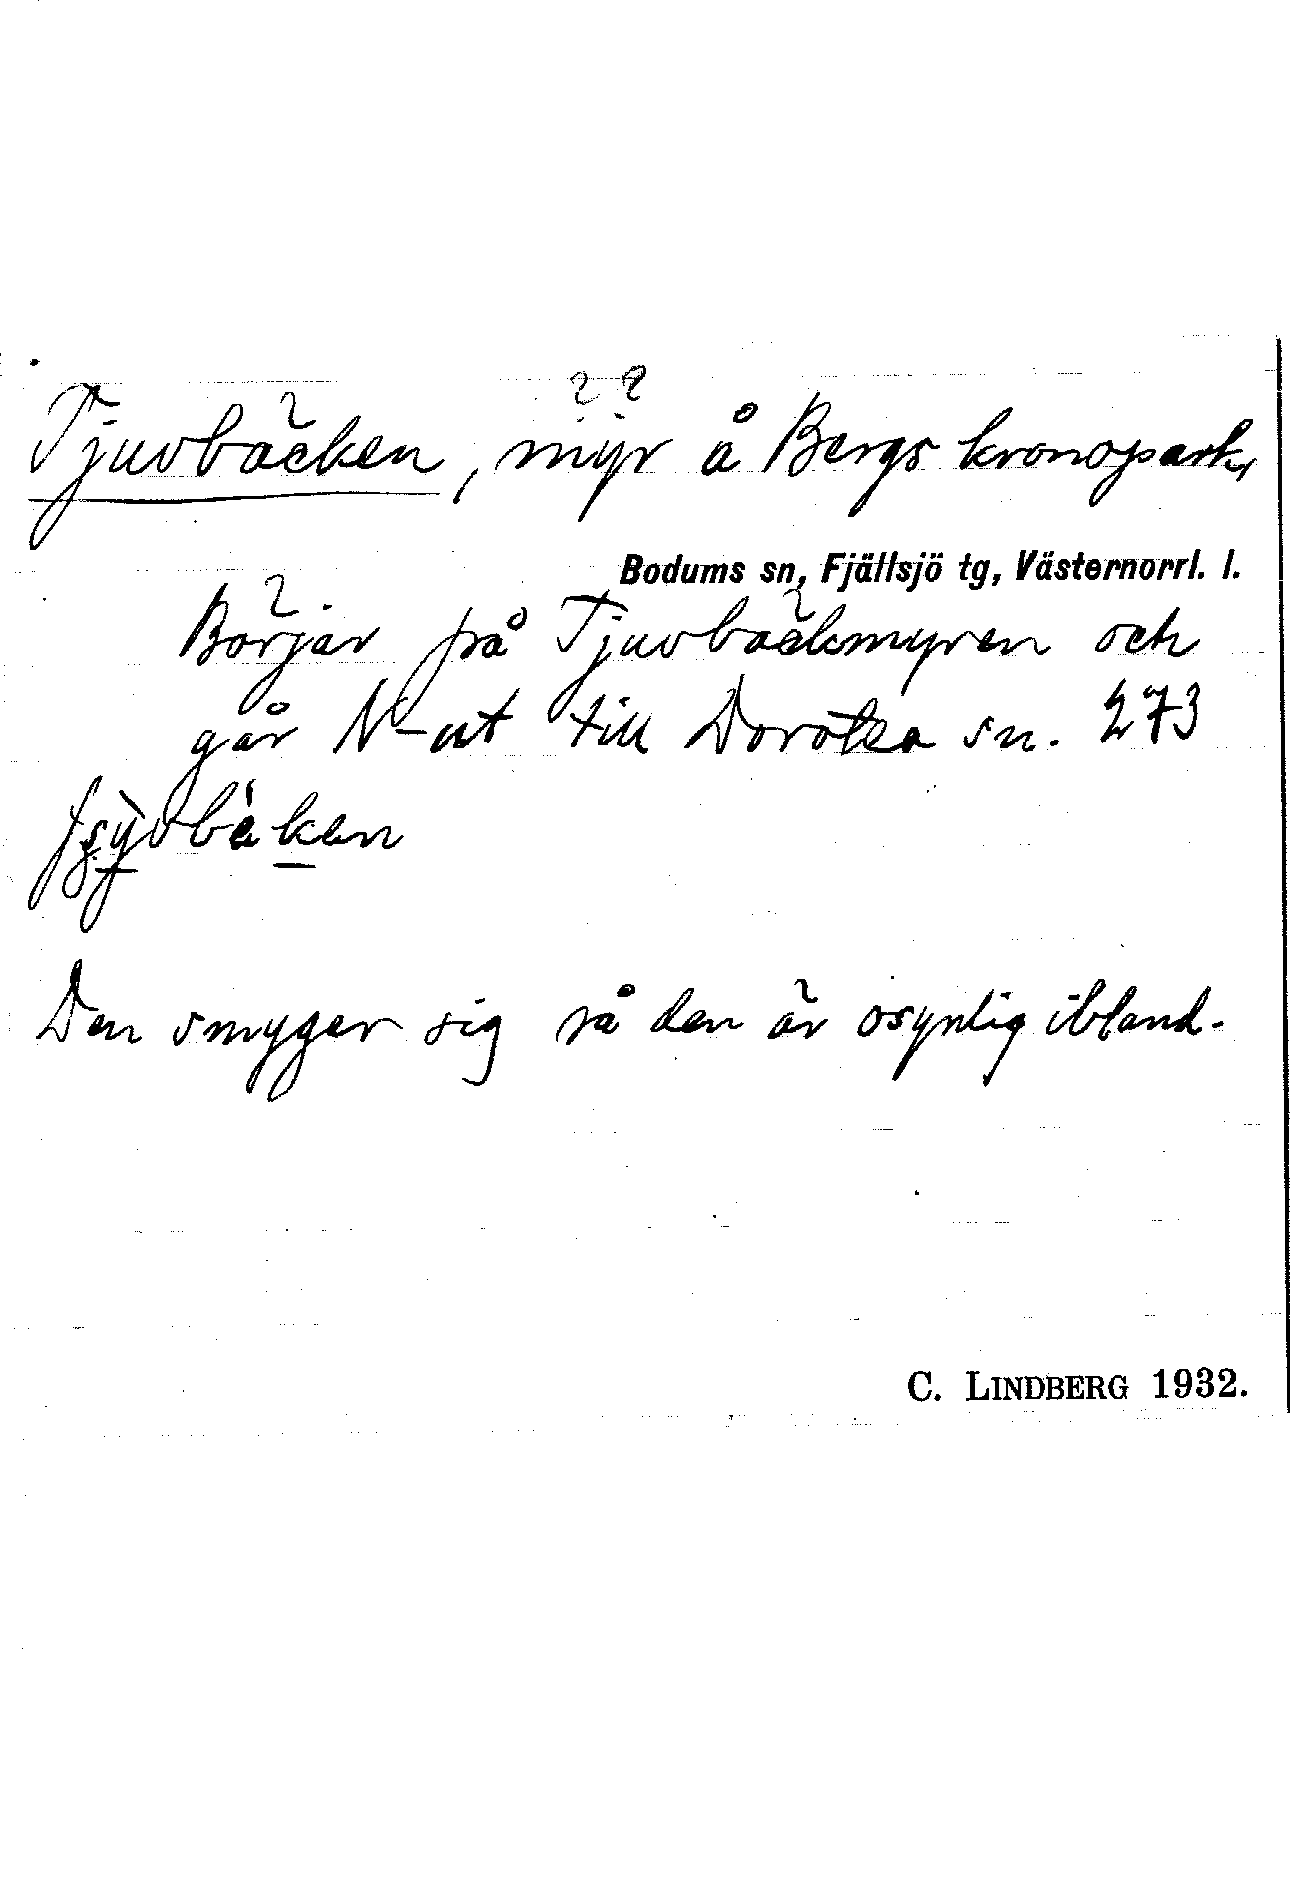 ? ?
Tjuvbäcken, myr å Bergs kronopark,
Bodums sn, Fjällsjö tg, Västernorrl. l.
Börjar på Tjuvbäckmyren och
går N-ut till Dorotea sn. 273
Den smyger sig så den är osynlig ibland.
C. LINDBERG 1932.